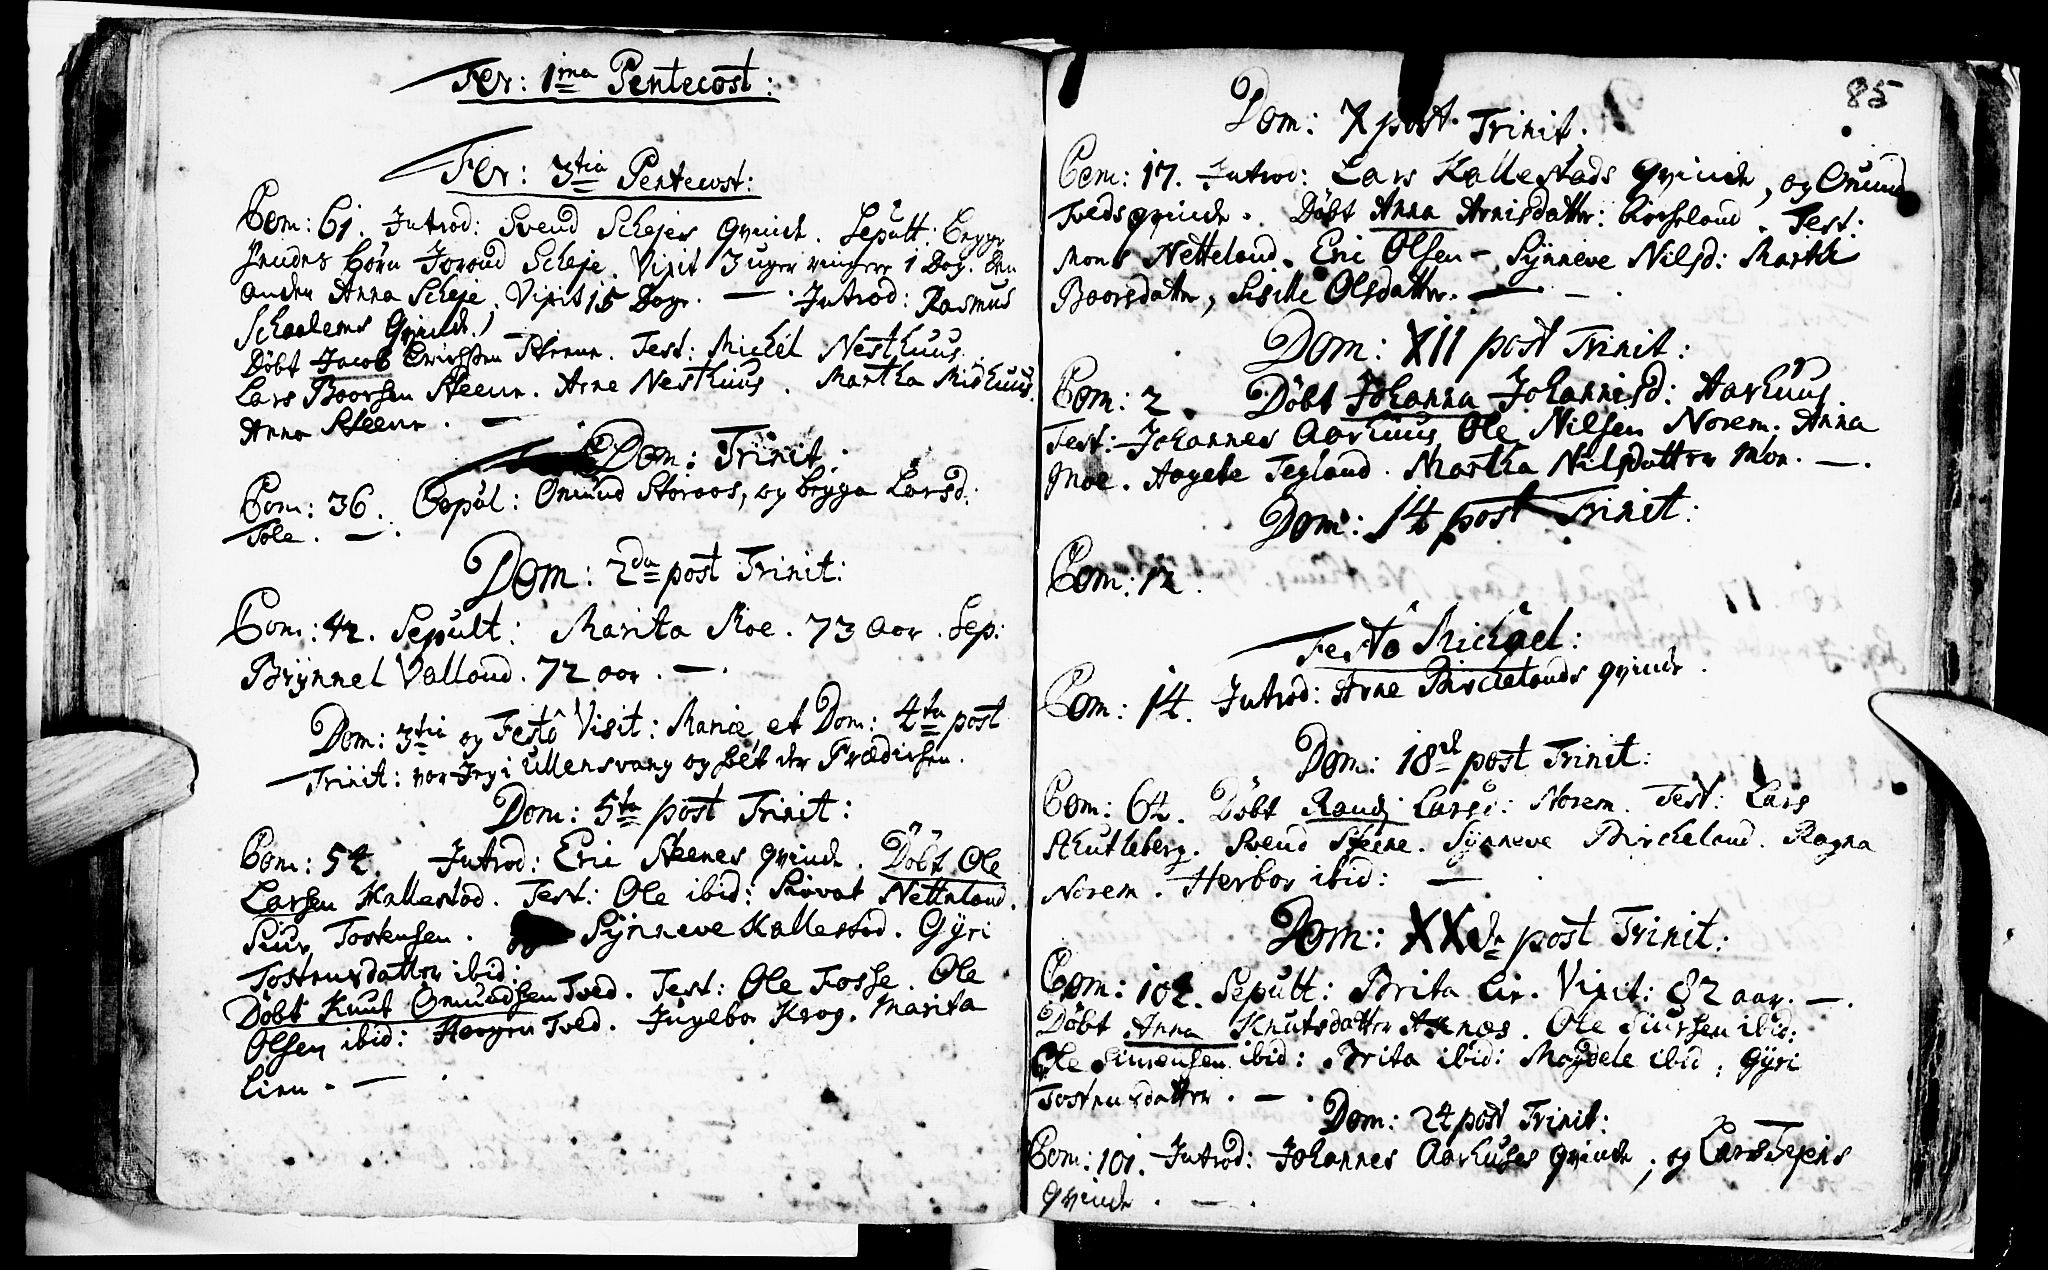 Fer: 1ma Pentecost:
Fer: 3tia Pentecost:
Com: 61. Introd: Svend Schejes Qvinde. Sepult: Begge
Svendes börn Joround Scheje. Vixit 3 uger ringere 1 Dag. den
anden Anna Scheje. Vixit 15 Dage. — . Introd: Rasmus
Qvinde.
Döbt Jacob Erichsen Steene. Test: Michel Nesthuus.
Lars Boorsen Steene. Arne Nesthuus. Martha Midhuus.
Anna Steene. —
Dom: Trinit.
Com: 36. Copul: Omund Storaas, og Brygga Larsd:
Tole. — .
Dom: 2da post Trinit:
Com: 42. Sepult: Marita Moe. 73 aar. Sep:
Brÿnnel Valland. 72 aar. — .
Dom: 3tia og Festô Visit: Mariæ et Dom: 4ta post
Trinit: var Jeg i Ullensvang og der
Dom: 5ta post Trinit:
Com: 54. Introd: Eric Steenes qvinde. Döbt Ole
Larsen Kallestad. Test: Ole ibid: Siovat Netteland.
Siur Tostensen. Sÿnneve Kallestad. Gÿri
Tostensdatter ibid:
Döbt Knut Omundsen Tved. Test: Ole Fosse. Ole
Olsen ibid: Tved. Ingebor Krog. Marita
Lien. — .
85
Dom: X post Trinit.
Com: 17. Introd: Lars Kallestads Qvinde, og Omund
Tveds qvinde. Döbt Anna Arnisdatter: Birkeland. Test:
Mons Netteland. Eric Olsen — Sÿnneve Nilsd: Martha
Boorsdatter, Sisille Olsdatter. — .
Dom: XII post Trinit:
Com: 2. Döbt Johanna Johannisd: Aarhuus.
Test: Johannes Aarhuus, Ole Nilsen Norem. Anna
Moe. Aagete Tegland. Martha Nilsdatter Moe. — .
Dom: 14 post Trinit:
Com: 12.
Festô Michäel:
Com: 14. Introd: Arne Birchelands qvinde.
Dom: 18de post Trinit:
Com: 64. Döbt Randj Larsd: Norem. Test: Lars
Skutleberg. Svend Steene. Sÿnneve Bircheland. Ragna
Norem. Herbor ibid: —
Dom: XXde post Trinit:
Com: 102. Sepult: Brita Lie. Vixit: 82 aar. — .
Döbt Anna Knutsdatter Axnæs. Ole Siursen ibid:
Ole Simensen ibid: Brita ibid: Magdele ibid: Gÿri
Tostensdatter. — .
Dom: 24 post Trinit:
Com: 101. Introd: Johannes Aarhuses qvinde, og Lars Tepens
qvinde. — .